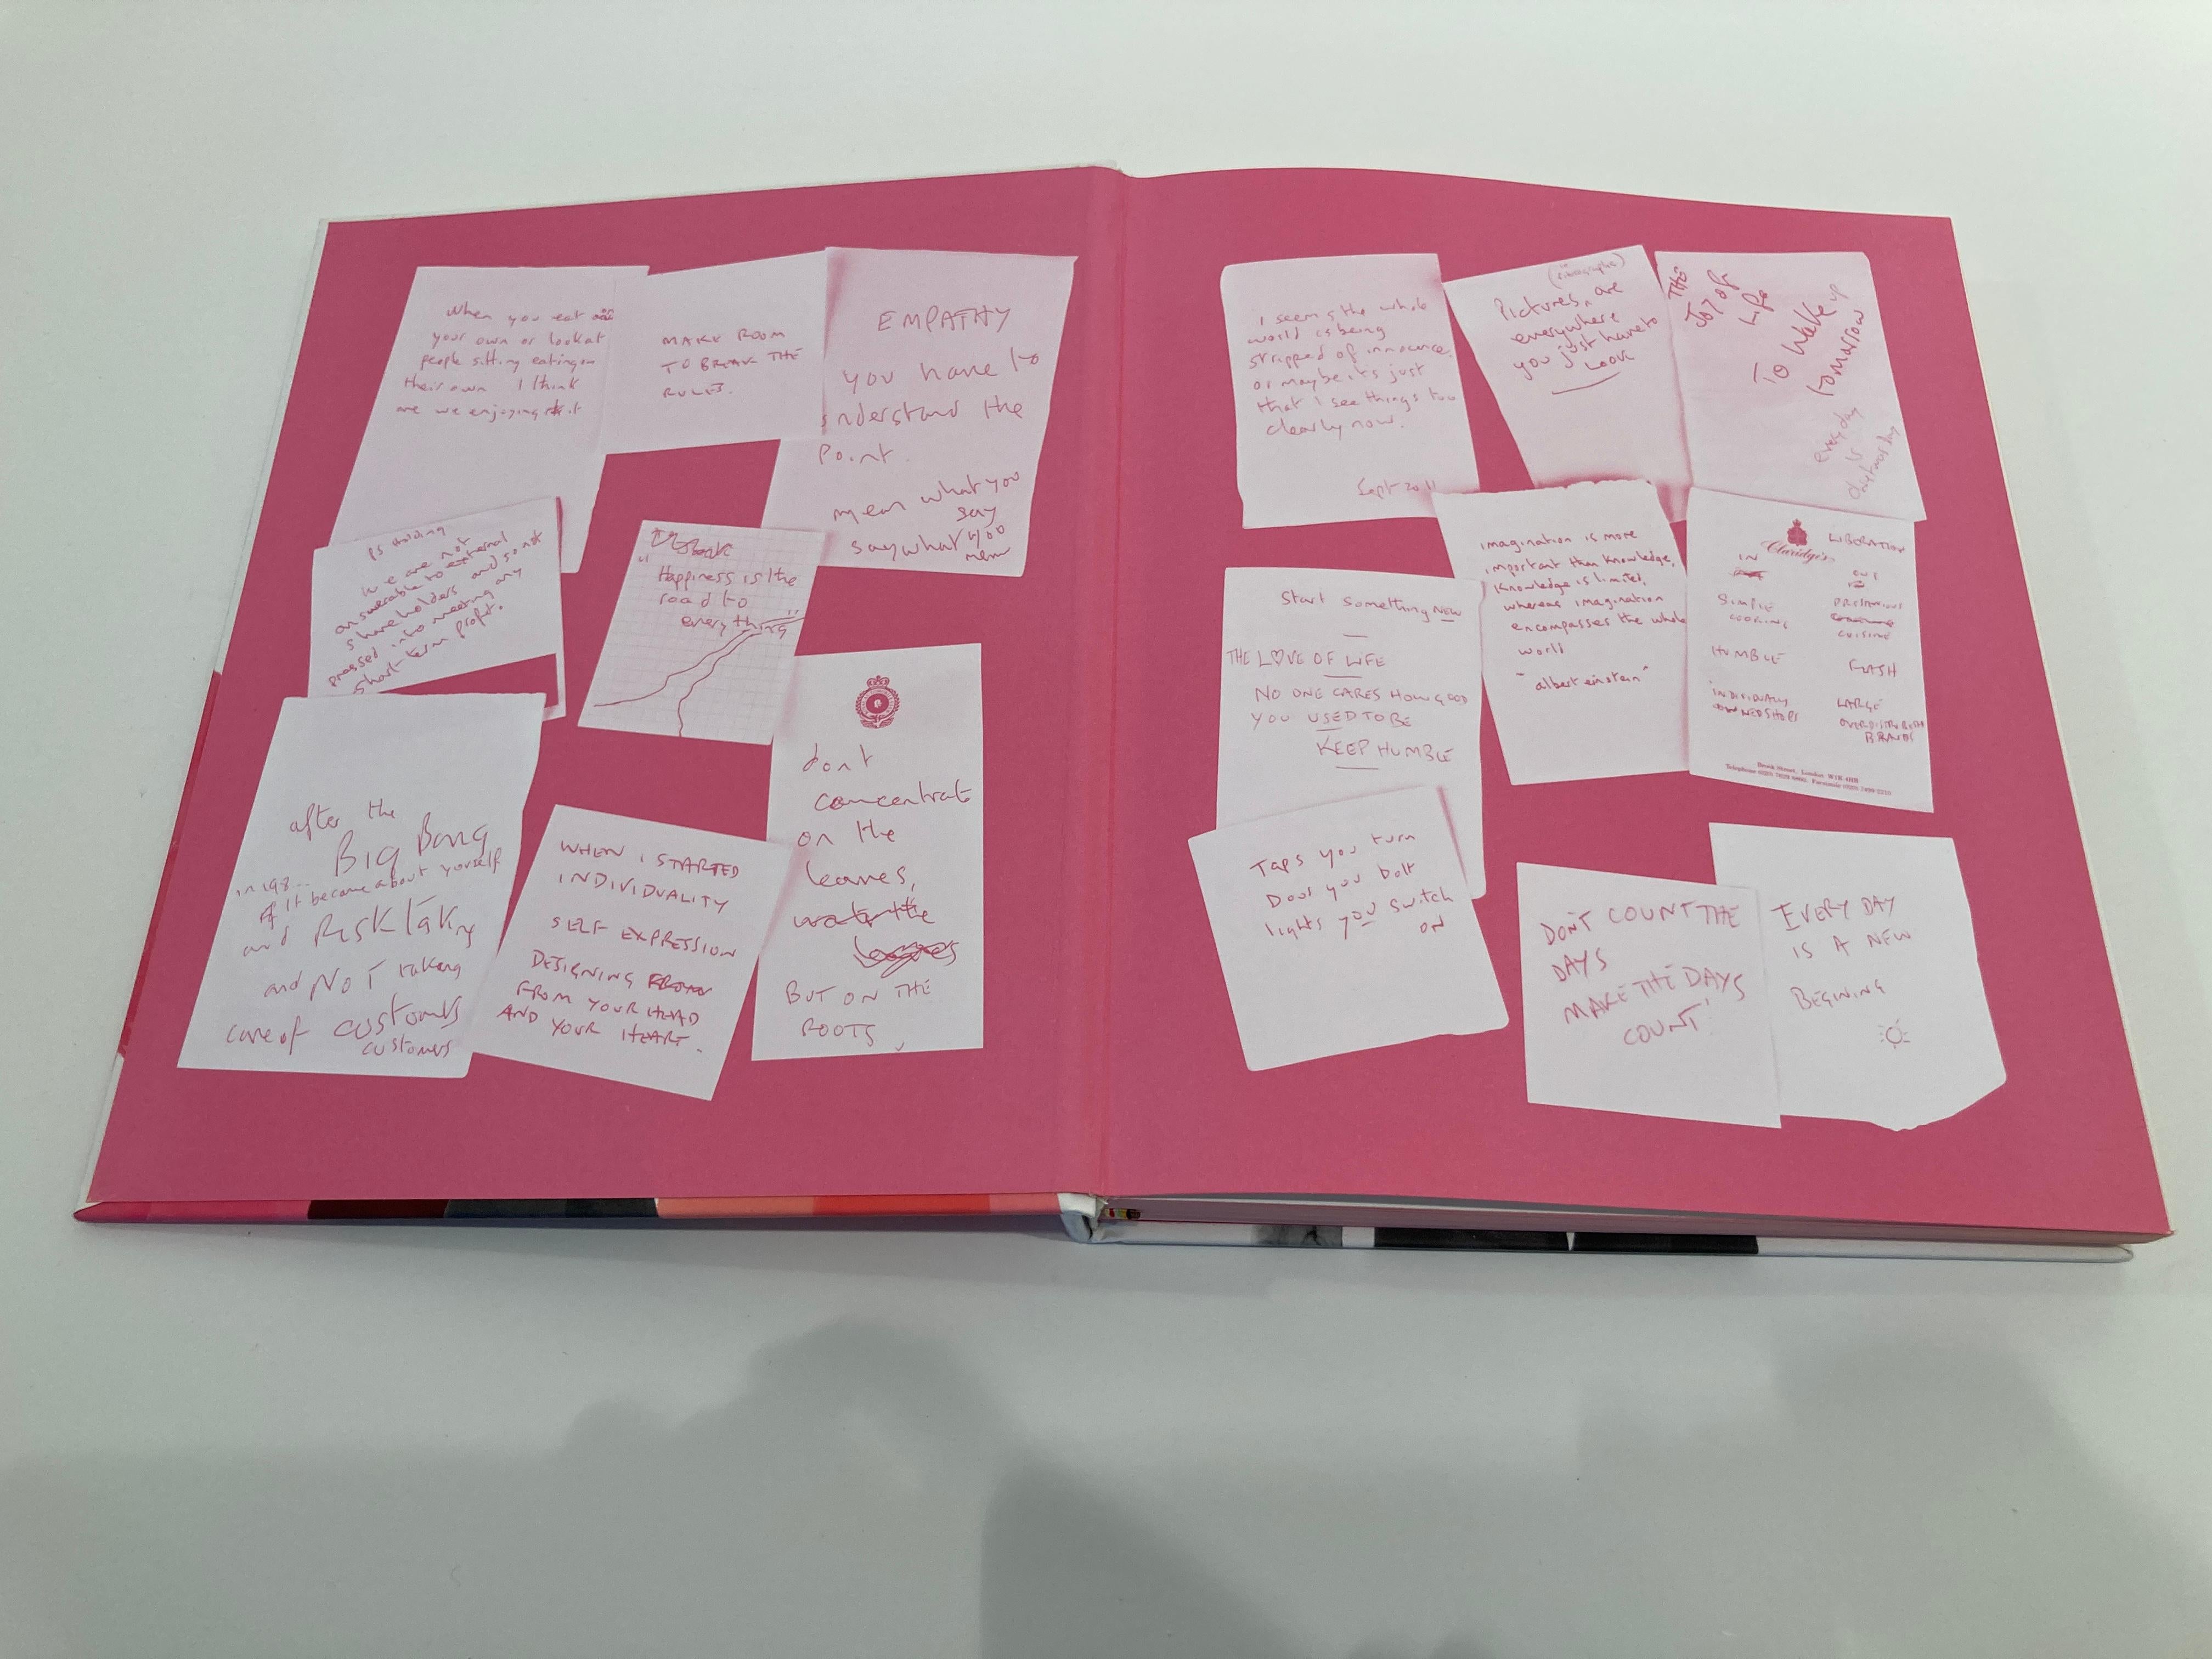 When you eat
your own or look at
people sitting eating on
their own I think
are we enjoying it
MAKE ROOM
TO BREAK THE
RULES.
EMPATHY
you have to
understand the
point.
mean what you
say
say what you
mean
PS Holding
we are not
answerable to external
shareholders and so not
pressed into meeting any
short-term profit.
"Happiness is the
road to
everything"
after the
BIG Bang
in 198...
it became about yourself
and RISK TAKing
and NOT taking
care of customers
customers
WHEN I STARTED
INDIVIDUALITY
SELF EXPRESSION
DESIGNING FROM
FROM YOUR HEAD
AND YOUR HEART.
dont
concentrate
on the
leaves,
water the
leaves
BUT ON THE
ROOTS
I seems the whole
world is being
stripped of innocence.
or maybe its just
that I see things too
clearly now.
Sept 2011
Pictures are
everywhere
you just have to
LOOK
THE
JOY OF
Life
To Wake up
tomorrow
every day
is
another day
Start something NEW
THE LOVE OF LIFE
NO ONE CARES HOW GOOD
YOU USED TO BE
KEEP HUMBLE
imagination is more
important than knowledge.
Knowledge is limited,
whereas imagination
encompasses the whole
world
"albert einstein"
Claridge's
LIBERATION
IN
OUT
SIMPLE
COOKING
CUISINE
HUMBLE
FLASH
INDIVIDUALLY
OWNED SHOPS
LARGE
OVERDISTRIBUTED
BRANDS
Brook Street, London W1K 4HR
Taps you turn
Door you bolt
lights you switch
on
DON'T COUNT THE
DAYS
MAKE THE DAYS
COUNT!
EVERY DAY
IS A NEW
BEGINING